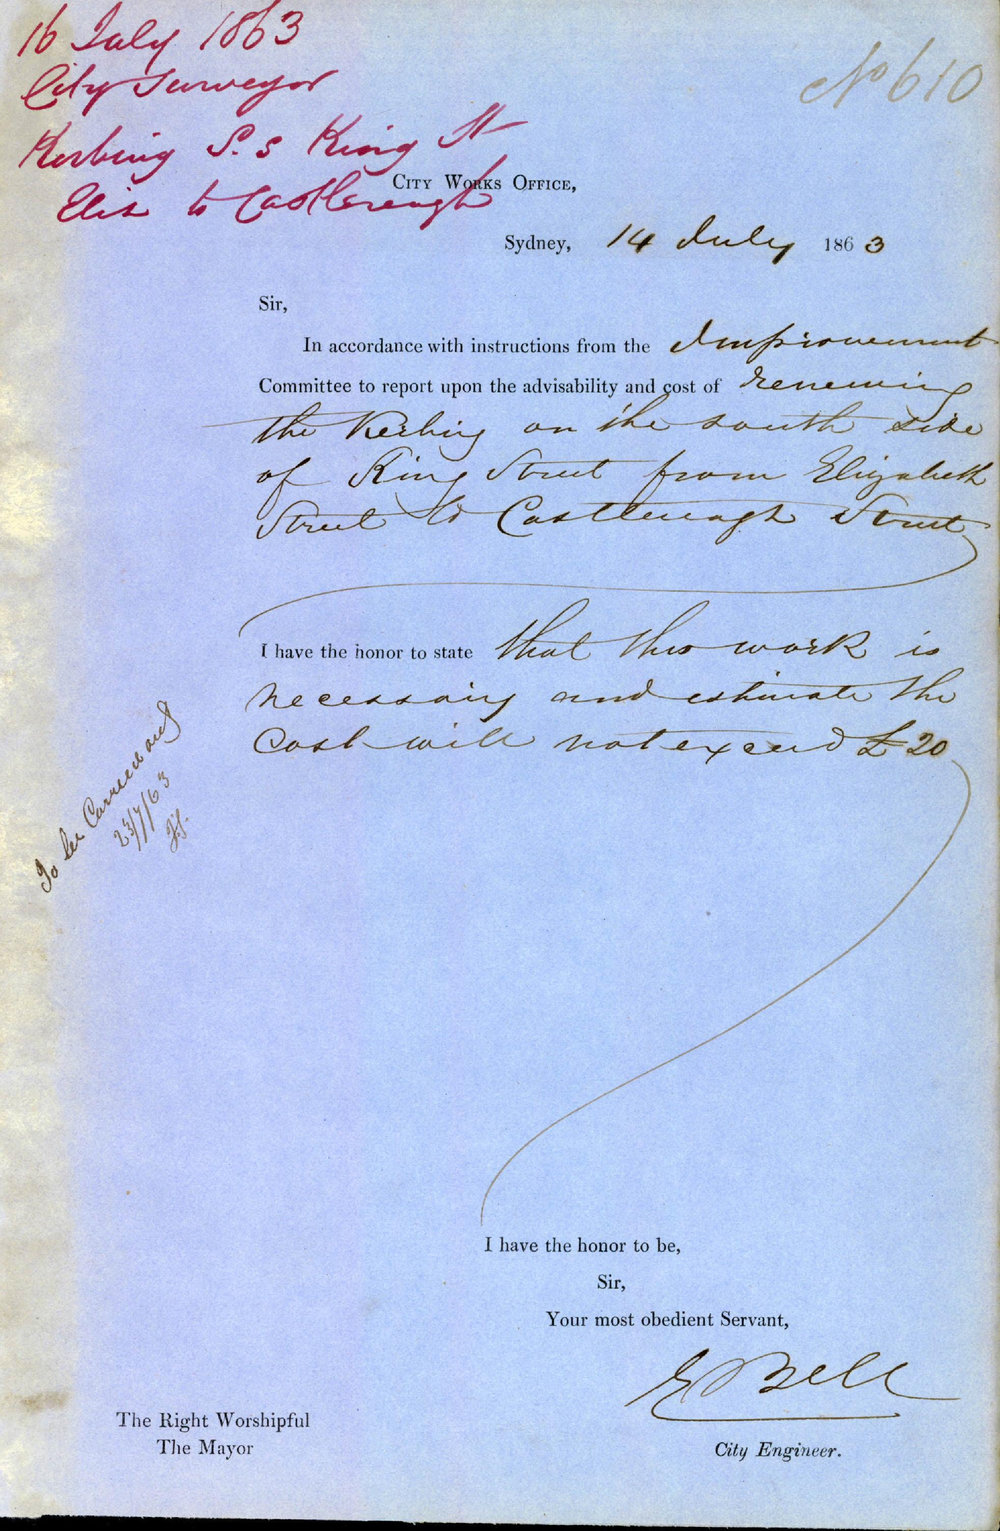 16 July 1863
City Surveyor
Kerbing S.s King St
Eliz to Castlereagh
No 610
CITY WORKS OFFICE,
Sydney, 14 July 1863
Sir,
In accordance with instructions from the Improvement
Committee to report upon the advisability and cost of renewing
the Kerbing on the south side
of King Street from Elizabeth
Street to Castlereagh Street
I have the honor to state that this work is
necessary and estimate the
Cost will not exceed £20
To be Carried out
23/7/63
I have the honor to be,
Sir,
Your most obedient Servant,
E Bell
City Engineer.
The Right Worshipful
The Mayor